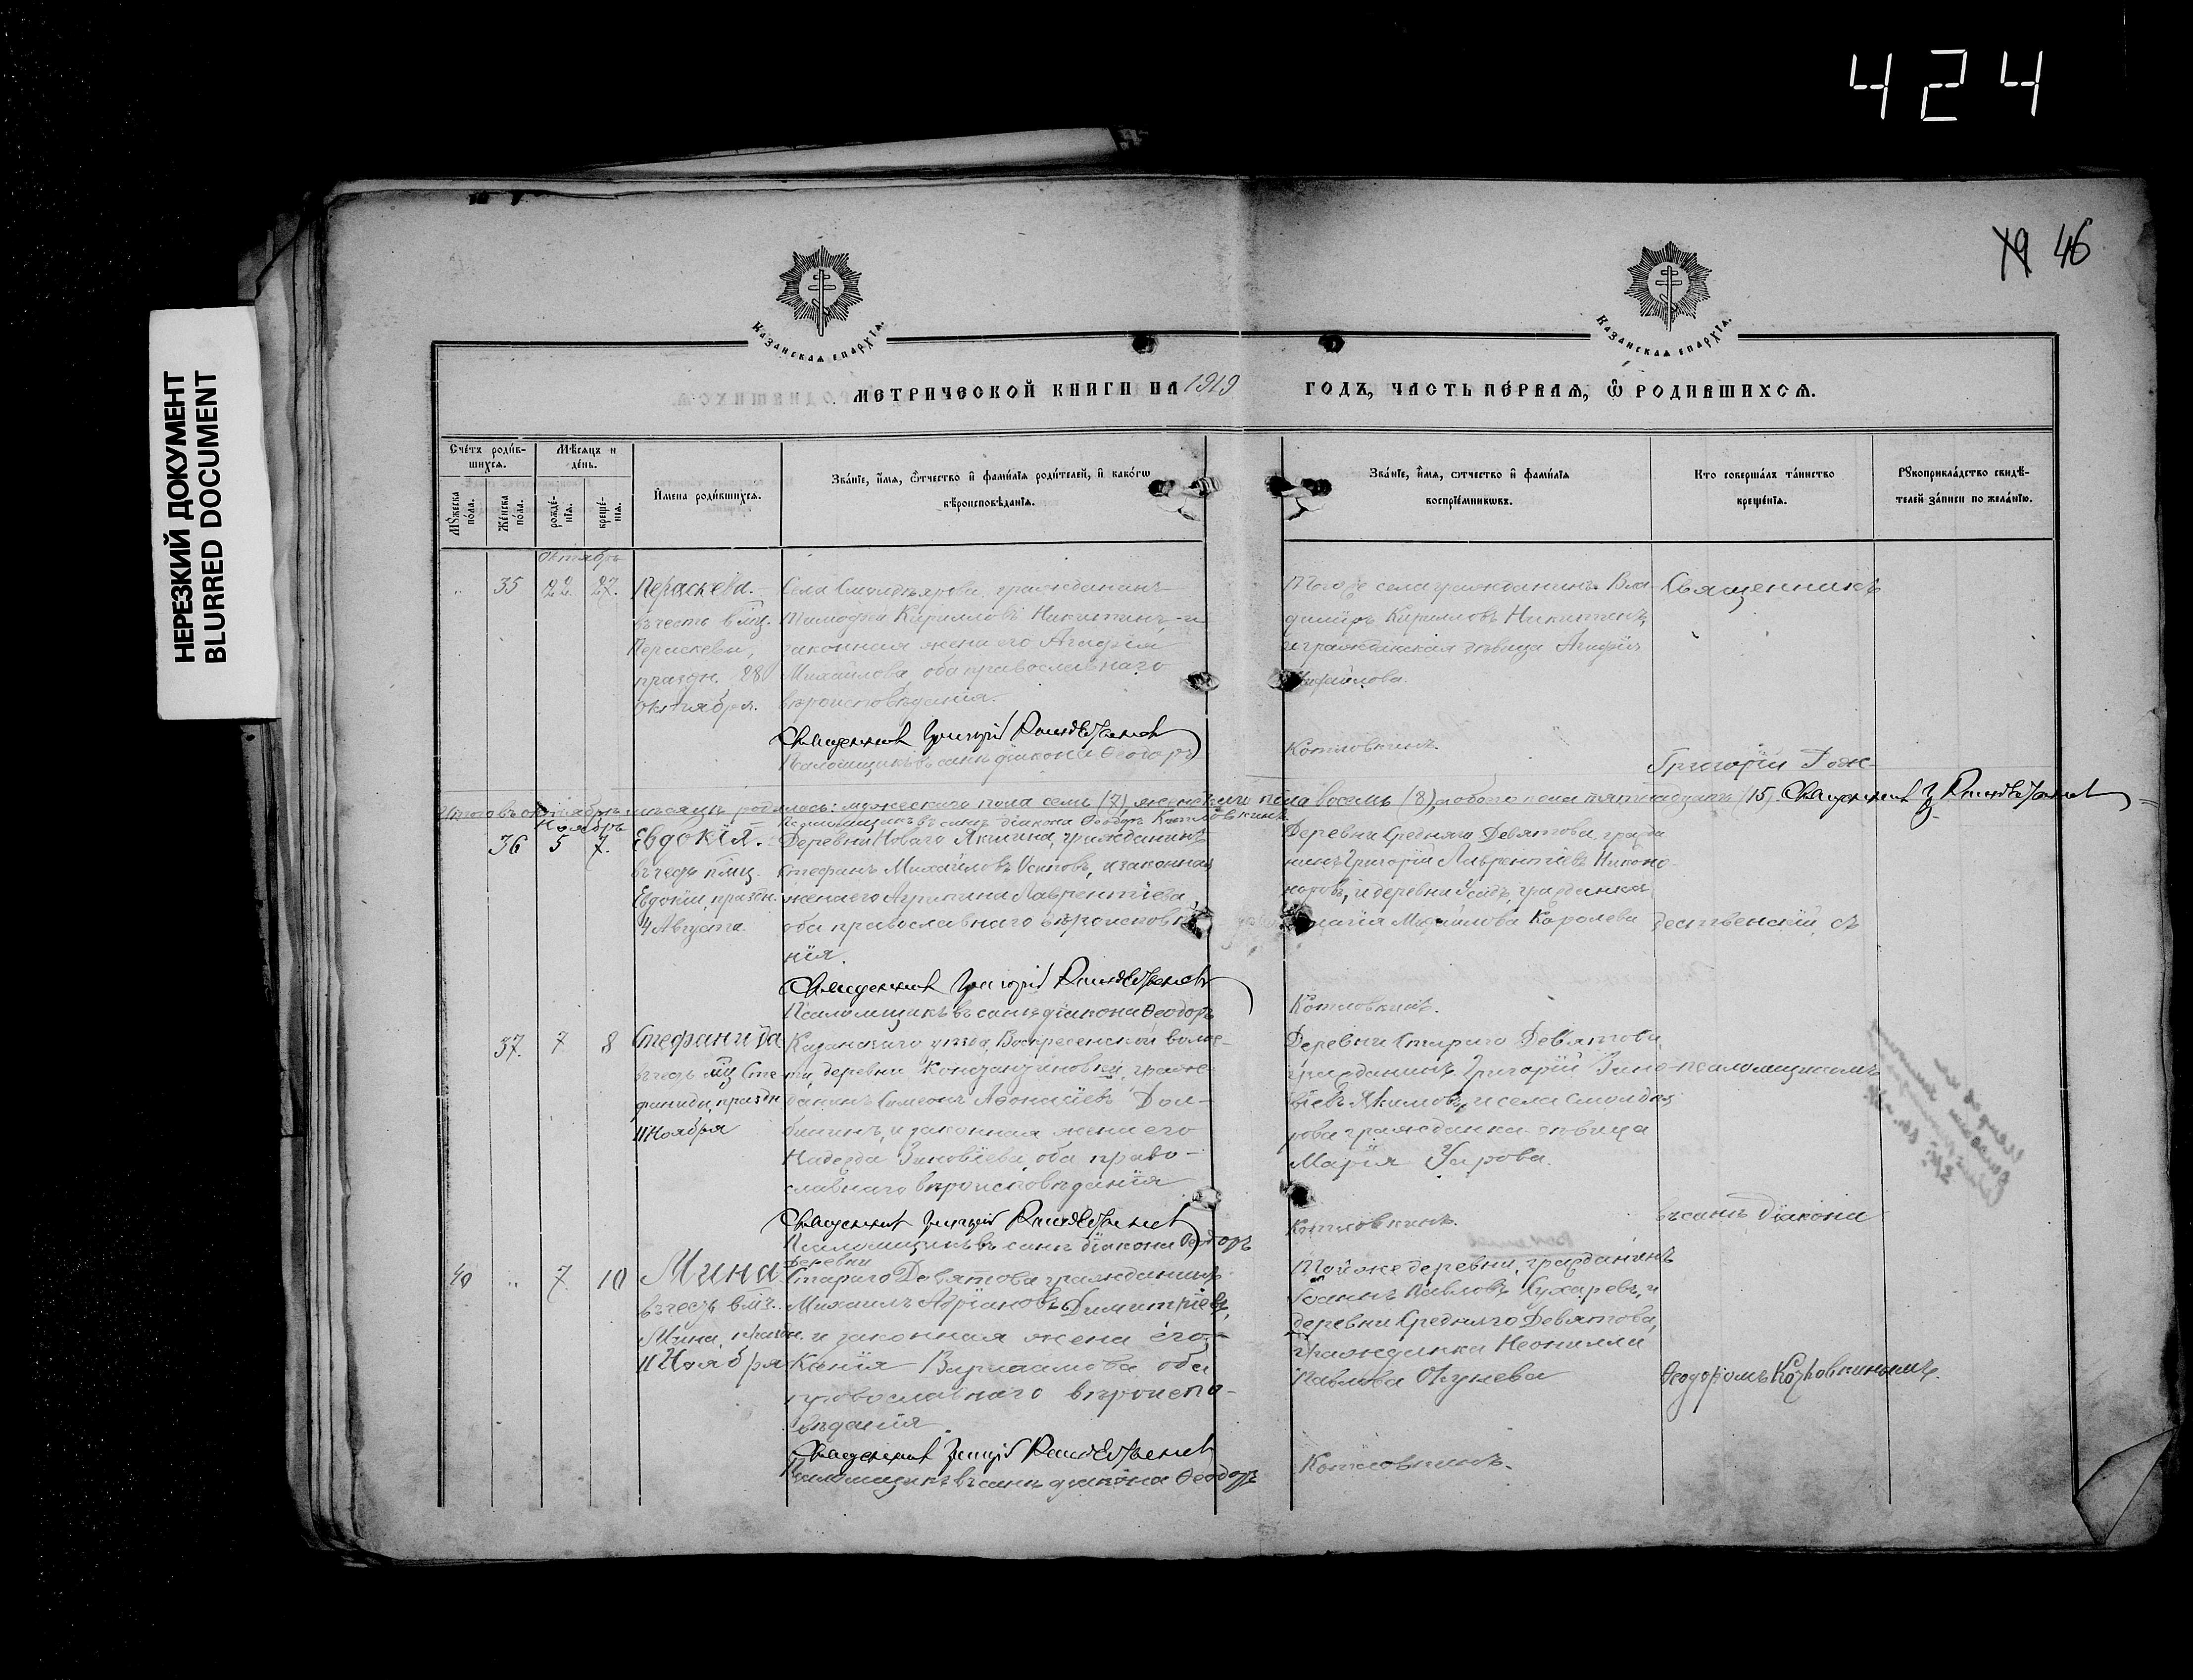 424
НЕРЕЗКИЙ ДОКУМЕНТ
BLURRED DOCUMENT
46
Казанская епархїѧ.
Казанская епархїѧ.
МЕТРИЧЕСКОЙ КНИГИ НА 1919
ГОДЪ, ЧАСТЬ ПЕ́РВАЯ, Ѽ РОДИВШИХСѦ.
Сче́тъ роди́вшихсѧ.
Мѣ́сѧцъ и де́нь.
Мꙋ́жеска по́ла.
Же́нска по́ла.
рожде́нїѧ.
креще́нїѧ.
И́мена роди́вшихсѧ.
Зва́нїе, и́мѧ, ѻ́тчество и҆ фами́лїѧ роди́телей, и҆ како́гѡ
вѣроисповѣ́данїѧ.
Зва́нїе, и́мѧ, ѻ́тчество и҆ фами́лїѧ
воспрїе́мникѡвъ.
Кто соверша́лъ та́инство
креще́нїѧ.
Рꙋкоприкла́дство свидѣ́-
телей за́писи по жела́нїю.
Октябрь
35 22. 27. Параскева.
въ честь вмц.
Параскевы,
праздн. 28
октября.
Села Смолдеярова, гражданинъ
Тимофей Кирилловъ Никитинъ и
законная жена его Агафія
Михайлова, оба православнаго
вѣроисповѣданія.
Священникъ Григорій Рождественскій
Псаломщикъ въ санѣ діакона Ѳеодоръ
Того же села гражданинъ Вла-
диміръ Кирилловъ Никитинъ,
и гражданская дѣвица Агафія
Михайлова.
Котловкинъ.
Священникъ
Григорій Рож-
Итого въ октябрѣ мѣсяцѣ родилось: мужескаго пола семь (7), женскаго пола восемь (8), обоего пола пятнадцать (15). Священникъ Г. Рождественскій
Псаломщикъ въ санѣ діакона Ѳеодоръ Котловкинъ.
Ноябрь
36 5 7. Евдокія.
въ честь пмц.
Евдокіи, праздн.
4 Августа.
Деревни Новаго Якшина, гражданинъ
Стефанъ Михайловъ Осиповъ, и законная
жена его Агрипина Лаврентіева,
оба православнаго вѣроисповѣда-
нія.
Священникъ Григорій Рождественскій
Псаломщикъ въ санѣ діакона Ѳеодоръ
Деревни Средняго Девятова, гражда-
нинъ Григорій Лаврентіевъ Никоно-
ровъ, и деревни Усадъ, гражданка
Михайлова Королева
Котловкинъ.
дественскій съ
37. 7 8 Стефанида
въ честь мц Сте-
фаниды, праздн
11 Ноября
Казанскаго уѣзда, Воскресенской волос-
ти, деревни Константиновки, граж-
данинъ Симеонъ Афонасіевъ Дол-
бинъ, и законная жена его
Надежда Зиновіева, оба право-
славнаго вѣроисповѣданія
Священникъ Григорій Рождественскій
Псаломщикъ въ санѣ діакона Ѳеодоръ
Деревни Стараго Девятова
гражданинъ Григорій Зино-
віевъ Якимовъ, и села Смолдея-
рова гражданка дѣвица
Марія Уарова.
Котловкинъ.
псаломщикомъ
въ санѣ діакона
40 „ 7. 10 Мина
въ честь вмч.
Мина, праздн.
11 Ноября
Деревни
Стараго Девятова гражданинъ
Михаилъ Адріановъ Димитріевъ,
и законная жена его
Ксенія Варлаамова оба
православнаго вѣроиспо-
вѣданія
Священникъ Григорій Рождественскій
Псаломщикъ въ санѣ діакона Ѳеодоръ
Той же деревни, гражданинъ
Іоаннъ Павловъ Кухаревъ, и
деревни Средняго Девятова,
гражданка Неонилла
Павлова Окунева
Котловкинъ.
Ѳеодоромъ Котловкинымъ.